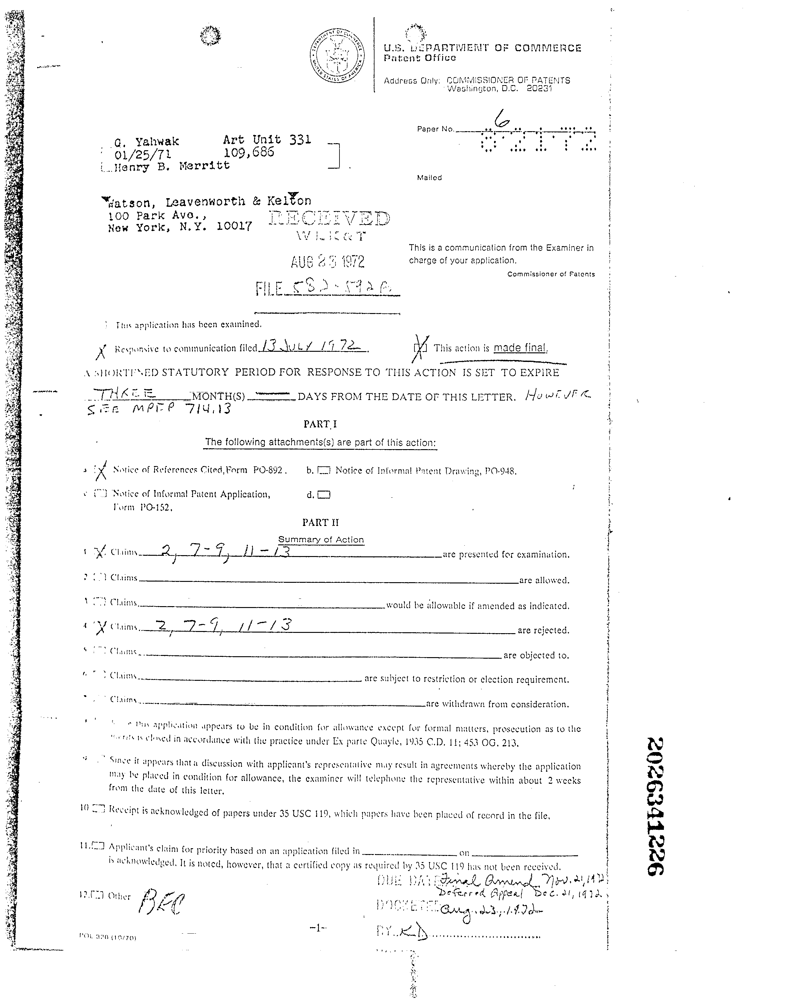 U.S. DEPARTMENT OF COMMERCE
Patent Office
Address Only: COMMISSIONER OF PATENTS
Washington, D.C. 20231
Paper No. 6
G. Yahwak Art Unit 331
01/25/71 109,686
Henry B. Merritt
Mailed
Watson, Leavenworth & Kelton
100 Park Ave.,
New York, N.Y. 10017
RECEIVED
W L K & T
AUG 23 1972
FILE
This is a communication from the Examiner in
charge of your application.
Commissioner of Patents
This application has been examined.
X Responsive to communication filed 13 July 1972 X This action is made final.
A SHORTENED STATUTORY PERIOD FOR RESPONSE TO THIS ACTION IS SET TO EXPIRE
THREE MONTH(S) DAYS FROM THE DATE OF THIS LETTER. HOWEVER
SEE MPEP 714.13
PART I
The following attachments(s) are part of this action:
a X Notice of References Cited, Form PO-892. b. Notice of Informal Patent Drawing, PO-948.
c Notice of Informal Patent Application, d.
Form PO-152.
PART II
Summary of Action
1 X Claims 2, 7-9, 11-13 are presented for examination.
2 Claims are allowed.
3 Claims would be allowable if amended as indicated.
4 X Claims 2, 7-9, 11-13 are rejected.
5 Claims are objected to.
6 Claims are subject to restriction or election requirement.
7 Claims are withdrawn from consideration.
this application appears to be in condition for allowance except for formal matters, prosecution as to the
merits is closed in accordance with the practice under Ex parte Quayle, 1935 C.D. 11; 453 OG. 213.
Since it appears that a discussion with applicant's representative may result in agreements whereby the application
may be placed in condition for allowance, the examiner will telephone the representative within about 2 weeks
from the date of this letter.
10 Receipt is acknowledged of papers under 35 USC 119, which papers have been placed of record in the file.
11. Applicant's claim for priority based on an application filed in on
is acknowledged. It is noted, however, that a certified copy as required by 35 USC 119 has not been received.
DUE DATE Final Amend. Nov. 21, 197
Deferred Appeal Dec. 21, 1972.
12. Other
DOCKETED Aug. 23, 1972
-1-
BY KD
POL 326 (10/70)
2026341226